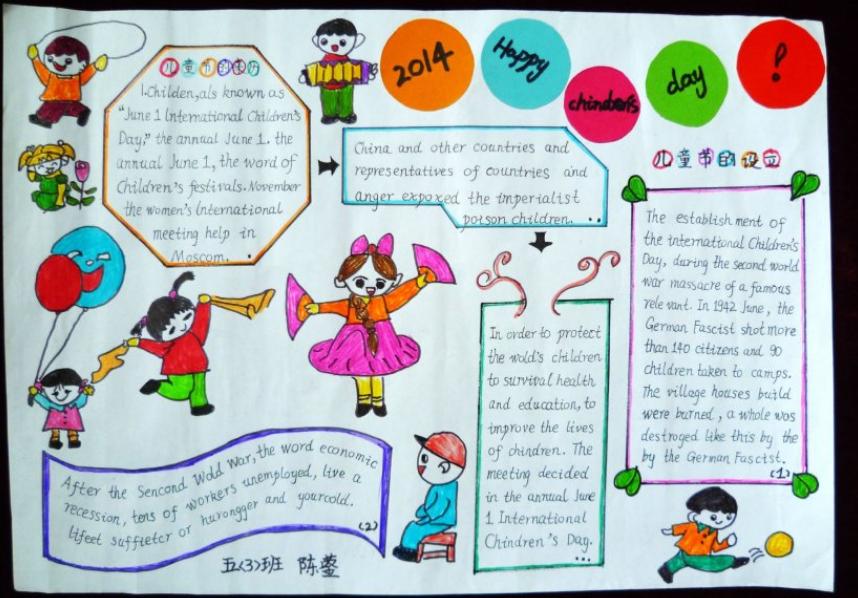 2014
Happy
chindren's
day
!
儿童节的来历
1.Childen,als known as
"June 1 International Children's
Day," the annual June 1. the
annual June 1, the word of
Children's festivals. November
the women's International
meeting help in
Moscom.
China and other countries and
representatives of countries and
anger expoxed the imperialist
poison children. ..
In order to protect
the wold's children
to survival health
and education, to
improve the lives
of chindren. The
meeting decided
in the annual June
1 International
Chindren's Day.
...
儿童节的设立
The establish ment of
the international Children's
Day, during the second world
war massacre of a famous
rele vant. In 1942 June, the
German Fascist shot more
than 140 citizens and 90
children taken to camps.
The village houses build
were burned, a whole was
destroged like this by the
by the German Fascist.
(1)
After the Sencond Wold War, the word economic
recession, tens of workers unemployed, live a
lifeet suffietcr or hurongger and yourcold.
(2)
五<3>班 陈蓥